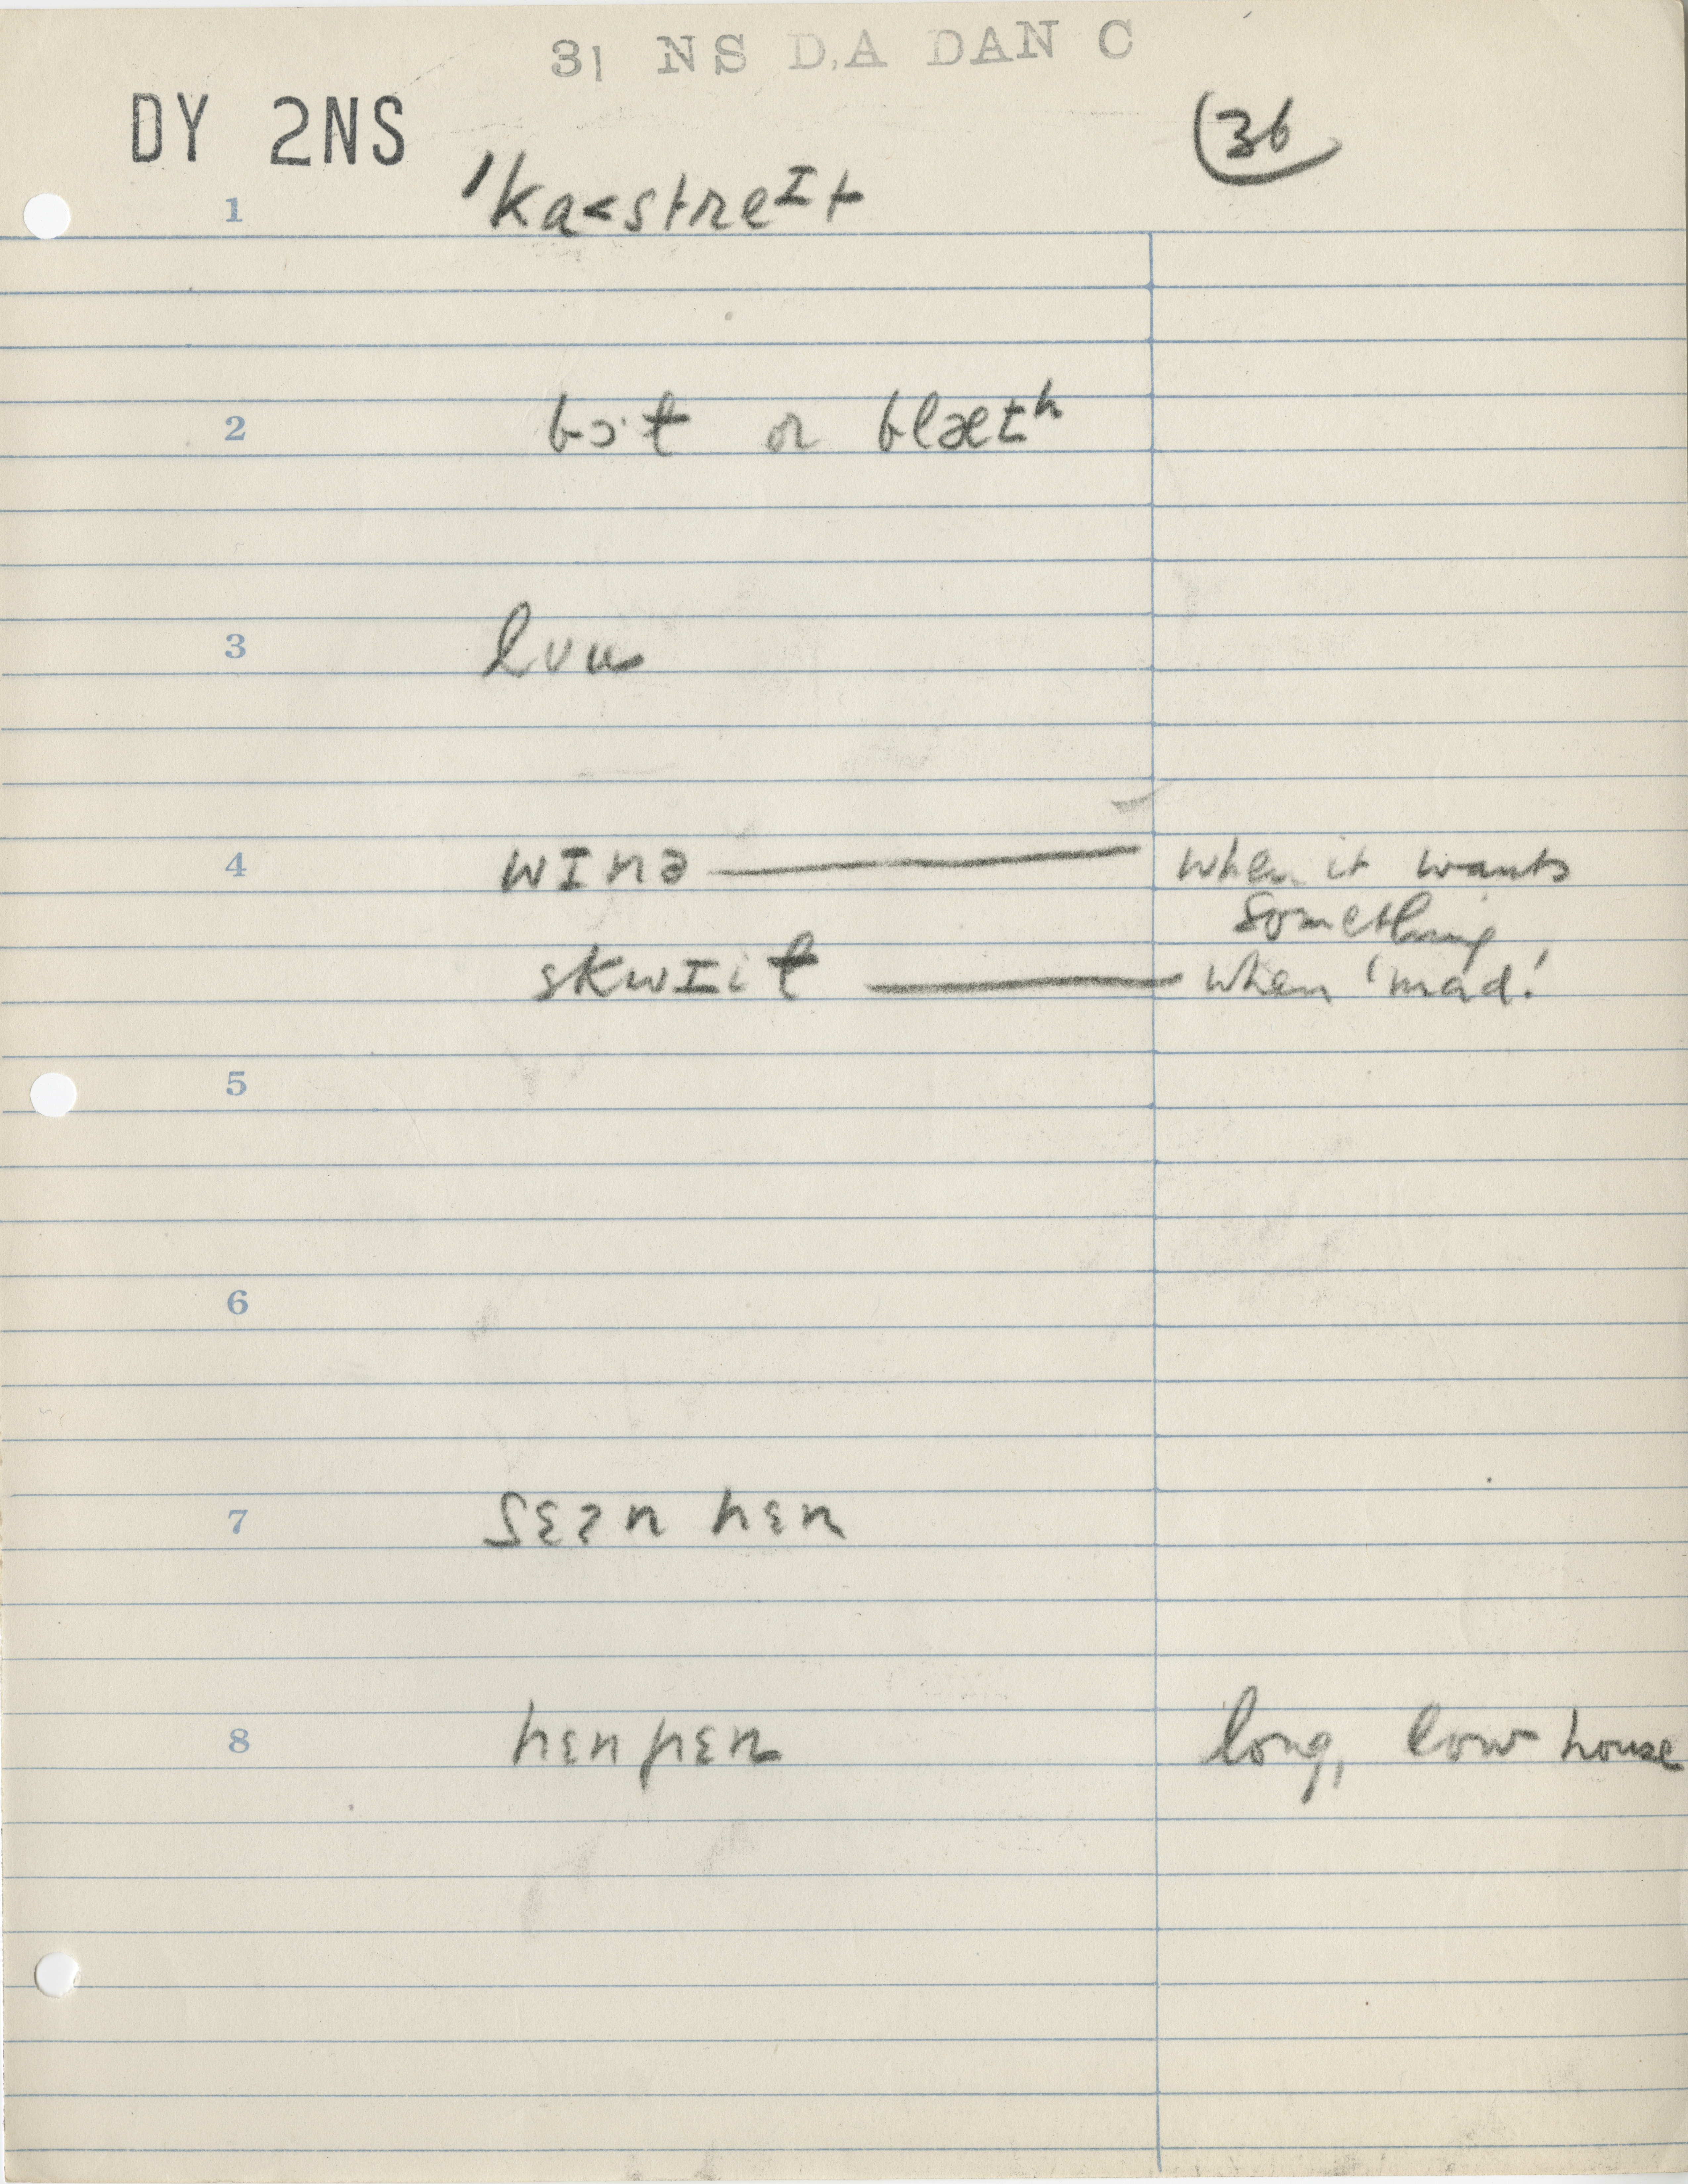 31 NS D.A DAN C
DY 2NS
36
1 ˈka<streɪt
2 bɔ·t or blætʰ
3 luu
4 wɪnə — when it wants
something
skwɪit — when 'mad'.
5
6
7 sɛɾn hɛn
8 hɛnpɛn long, low house